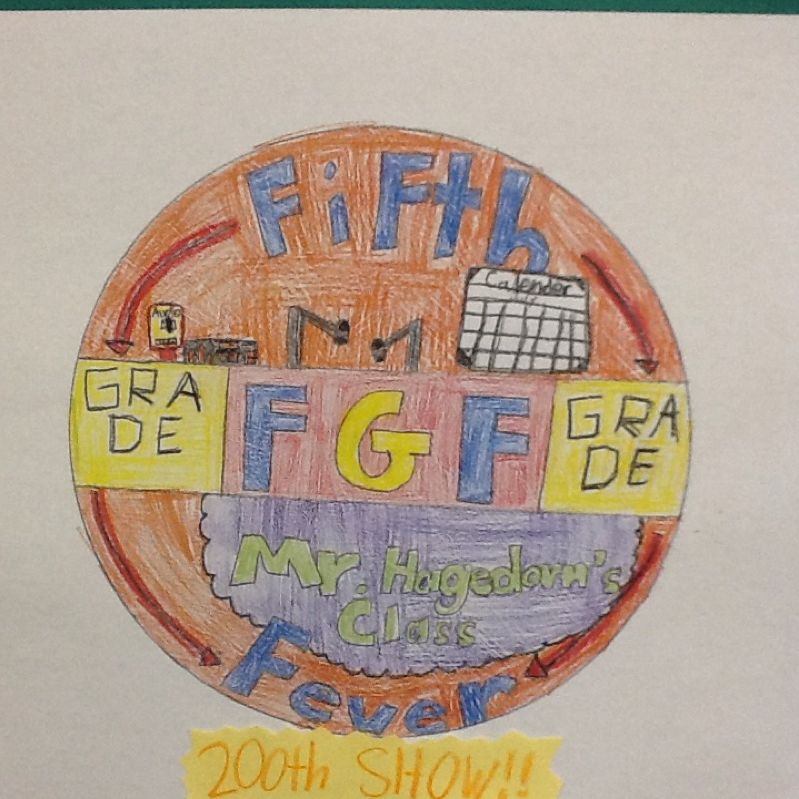 Fifth
Calender
Audio
GRA
DE
FGF
GRA
DE
Mr. Hagedorn's
Class
Fever
200th SHOW!!